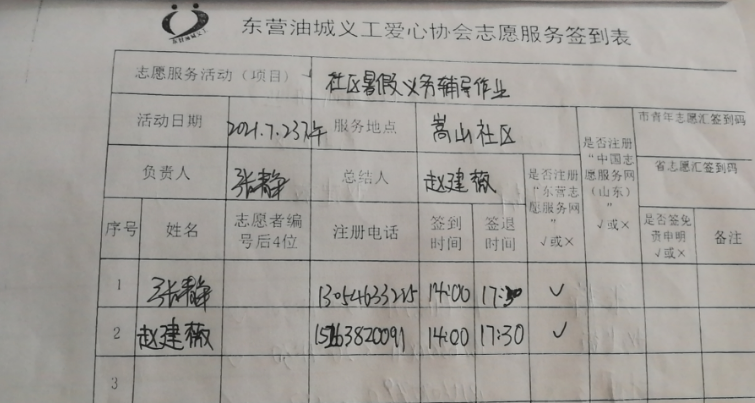 东营油城义工
东营油城义工爱心协会志愿服务签到表
志愿服务活动（项目） 社区暑假义务辅导作业
活动日期 2021.7.23下午 服务地点 嵩山社区 是否注册“中国志愿服务网（山东）”√或× 市青年志愿汇签到码
负责人 张静 总结人 赵建薇 是否注册“东营志愿服务网”√或× 省志愿汇签到码
序号 姓名 志愿者编号后4位 注册电话 签到时间 签退时间 是否签免责申明√或× 备注
1 张静 13054633225 14:00 17:30 ✓
2 赵建薇 15163820091 14:00 17:30 ✓
3